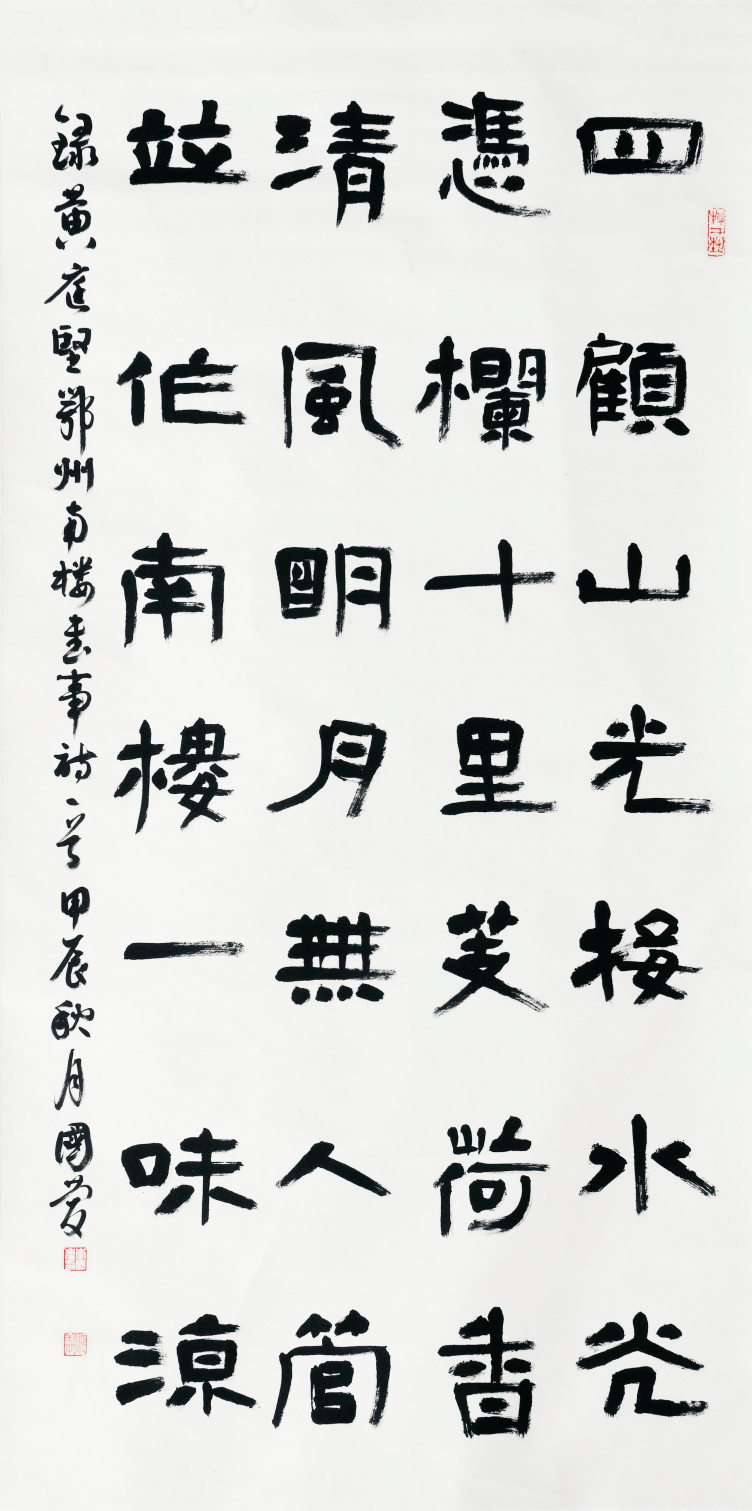 四顧山光接水光
憑欄十里芰荷香
清風明月無人管
並作南樓一味涼
錄黃庭堅鄂州南樓書事詩一首甲辰秋月國慶